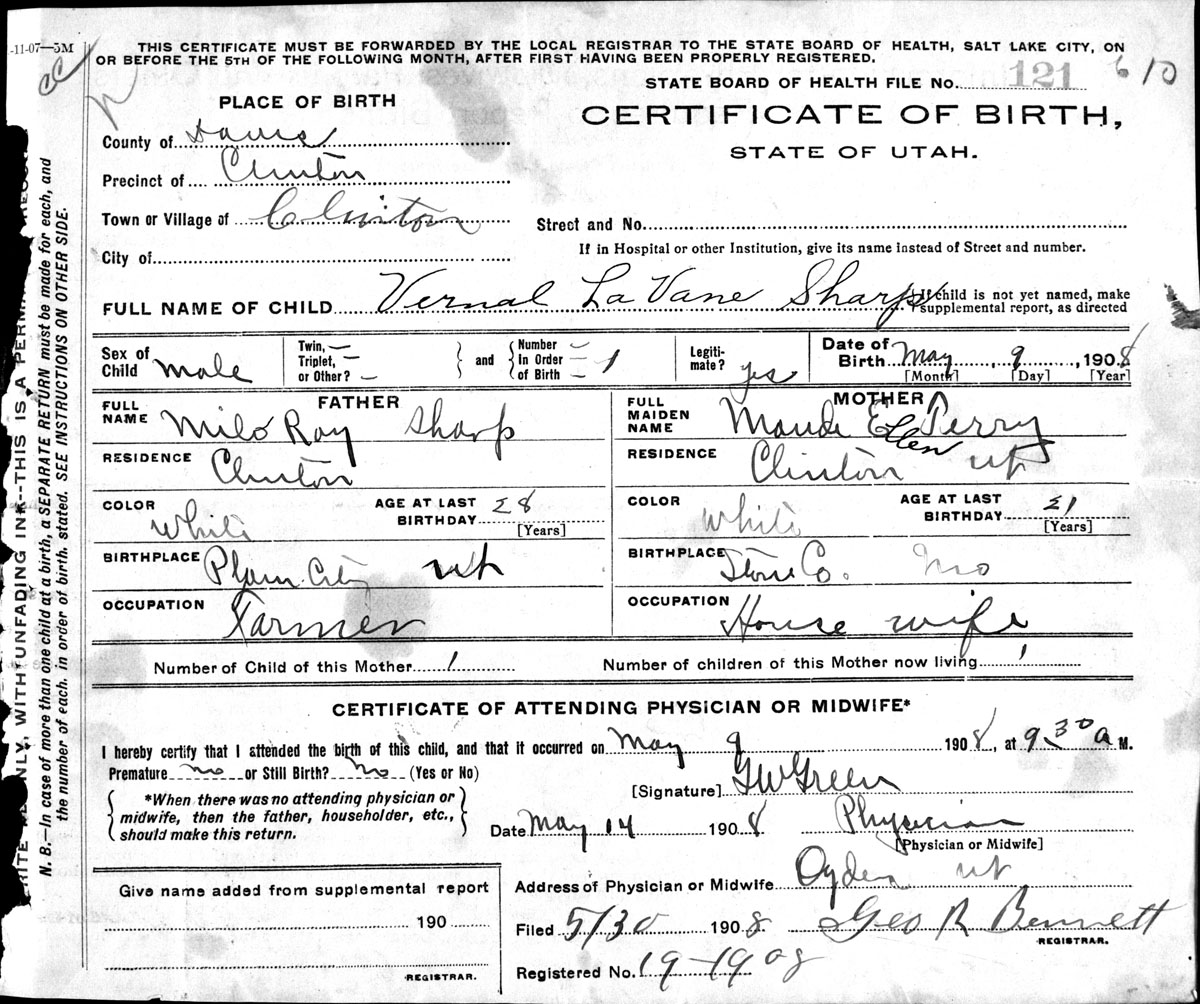 -11-07—5M
THIS CERTIFICATE MUST BE FORWARDED BY THE LOCAL REGISTRAR TO THE STATE BOARD OF HEALTH, SALT LAKE CITY, ON
OR BEFORE THE 5TH OF THE FOLLOWING MONTH, AFTER FIRST HAVING BEEN PROPERLY REGISTERED.
STATE BOARD OF HEALTH FILE No. 121 610
PLACE OF BIRTH
CERTIFICATE OF BIRTH,
STATE OF UTAH.
County of Davis
Precinct of Clinton
Town or Village of Clinton
Street and No.
City of
If in Hospital or other Institution, give its name instead of Street and number.
FULL NAME OF CHILD Vernal La Vane Sharp
If child is not yet named, make
supplemental report, as directed
Sex of Child Male
Twin, — Triplet, — or Other? —
and
Number — In Order — of Birth — 1
Legitimate? yes
Date of Birth May 9, 1908
[Month] [Day] [Year]
FATHER
FULL NAME Milo Ray Sharp
RESIDENCE Clinton
COLOR White
AGE AT LAST BIRTHDAY 28
[Years]
BIRTHPLACE Plain City Ut
OCCUPATION Farmer
MOTHER
FULL MAIDEN NAME Maude Ellen Perry
RESIDENCE Clinton Ut
COLOR White
AGE AT LAST BIRTHDAY 21
[Years]
BIRTHPLACE Stone Co. Mo
OCCUPATION House wife
Number of Child of this Mother 1
Number of children of this Mother now living 1
CERTIFICATE OF ATTENDING PHYSICIAN OR MIDWIFE*
I hereby certify that I attended the birth of this child, and that it occurred on May 9 1908, at 9.30 a M.
Premature no or Still Birth? no (Yes or No)
[Signature] GW Green
*When there was no attending physician or
midwife, then the father, householder, etc.,
should make this return.
Date May 14 1908 Physician
[Physician or Midwife]
Address of Physician or Midwife Ogden Ut
Give name added from supplemental report
190
REGISTRAR.
Filed 5/30 1908 Geo R Bennett
REGISTRAR.
Registered No. 19-1908
ONLY, WITH UNFADING INK--THIS IS A
N. B.—In case of more than one child at a birth, a SEPARATE RETURN must be made for each, and
the number of each, in order of birth, stated. SEE INSTRUCTIONS ON OTHER SIDE.